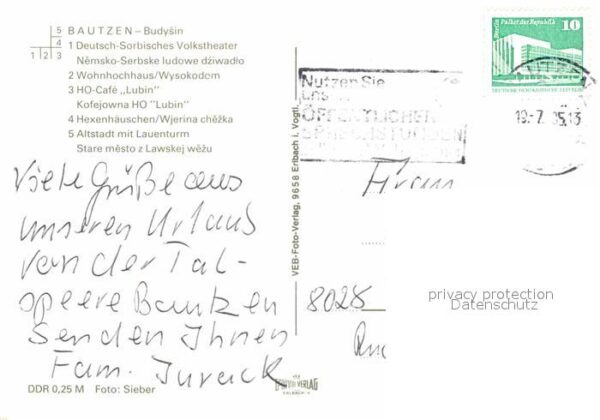 5 BAUTZEN – Budyšin
4 1 Deutsch-Sorbisches Volkstheater
1 2 3 Němsko-Serbske ludowe dźiwadło
2 Wohnhochhaus/Wysokodom
3 HO-Café „Lubin"
Kofejownja HO "Lubin"
4 Hexenhäuschen/Wjerina chěžka
5 Altstadt mit Lauenturm
Stare město z Lawskej wěžu
Viele Grüße aus
unseren Urlaub
von der Tal-
speere Bautzen
Senden Ihnen
Fam. Jurack
DDR 0,25 M Foto: Sieber
VEB-Foto-Verlag, 9658 Erlbach i. Vogtl.
Nutzen Sie
ÖFFENTLICHEN
SPRECHSTUNDEN
Berlin Palast der Republik
10
DEUTSCHE DEMOKRATISCHE REPUBLIK
19.-7.85.13
Frau
8028
privacy protection
Datenschutz